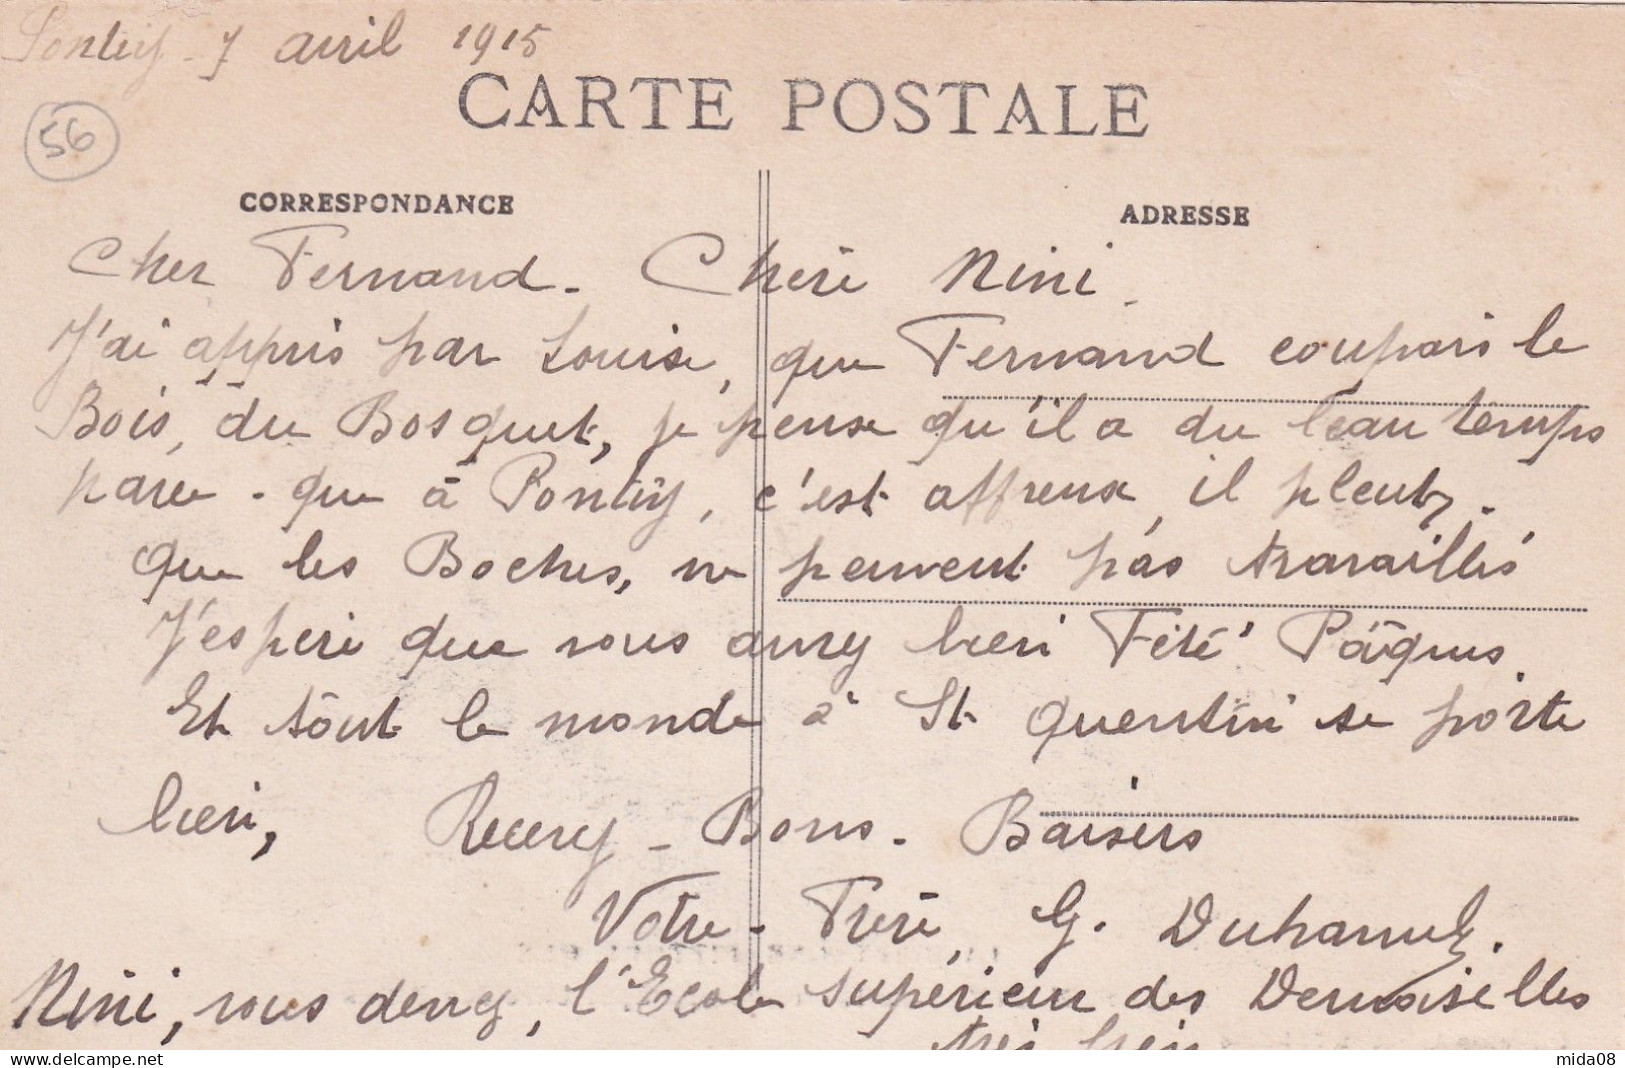 Pontivy - 7 avril 1915
CARTE POSTALE
56
CORRESPONDANCE
ADRESSE
Cher Fernand. Chère Nini.
J'ai appris par Louise, que Fernand coupais le
Bois, du Bosquet, je pense qu'il a du beau temps
parce. que à Pontivy, c'est affreux, il pleut,.
que les Boches, ne peuvent pas travaillés
J'espère que vous avrez bien Fété Pâques.
Et tôut le monde à St quentin se porte
bien, Recevez - Bons. Baisers
Votre. Frère, G. Duhamel.
Nini, vous devez, l'Ecole supérieur des Demoiselles
très bien
mida08